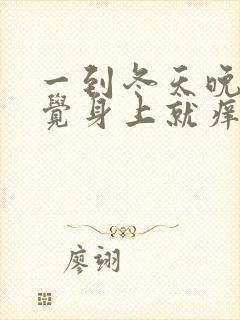 一到冬天晚
覺身上就痒
廖翊